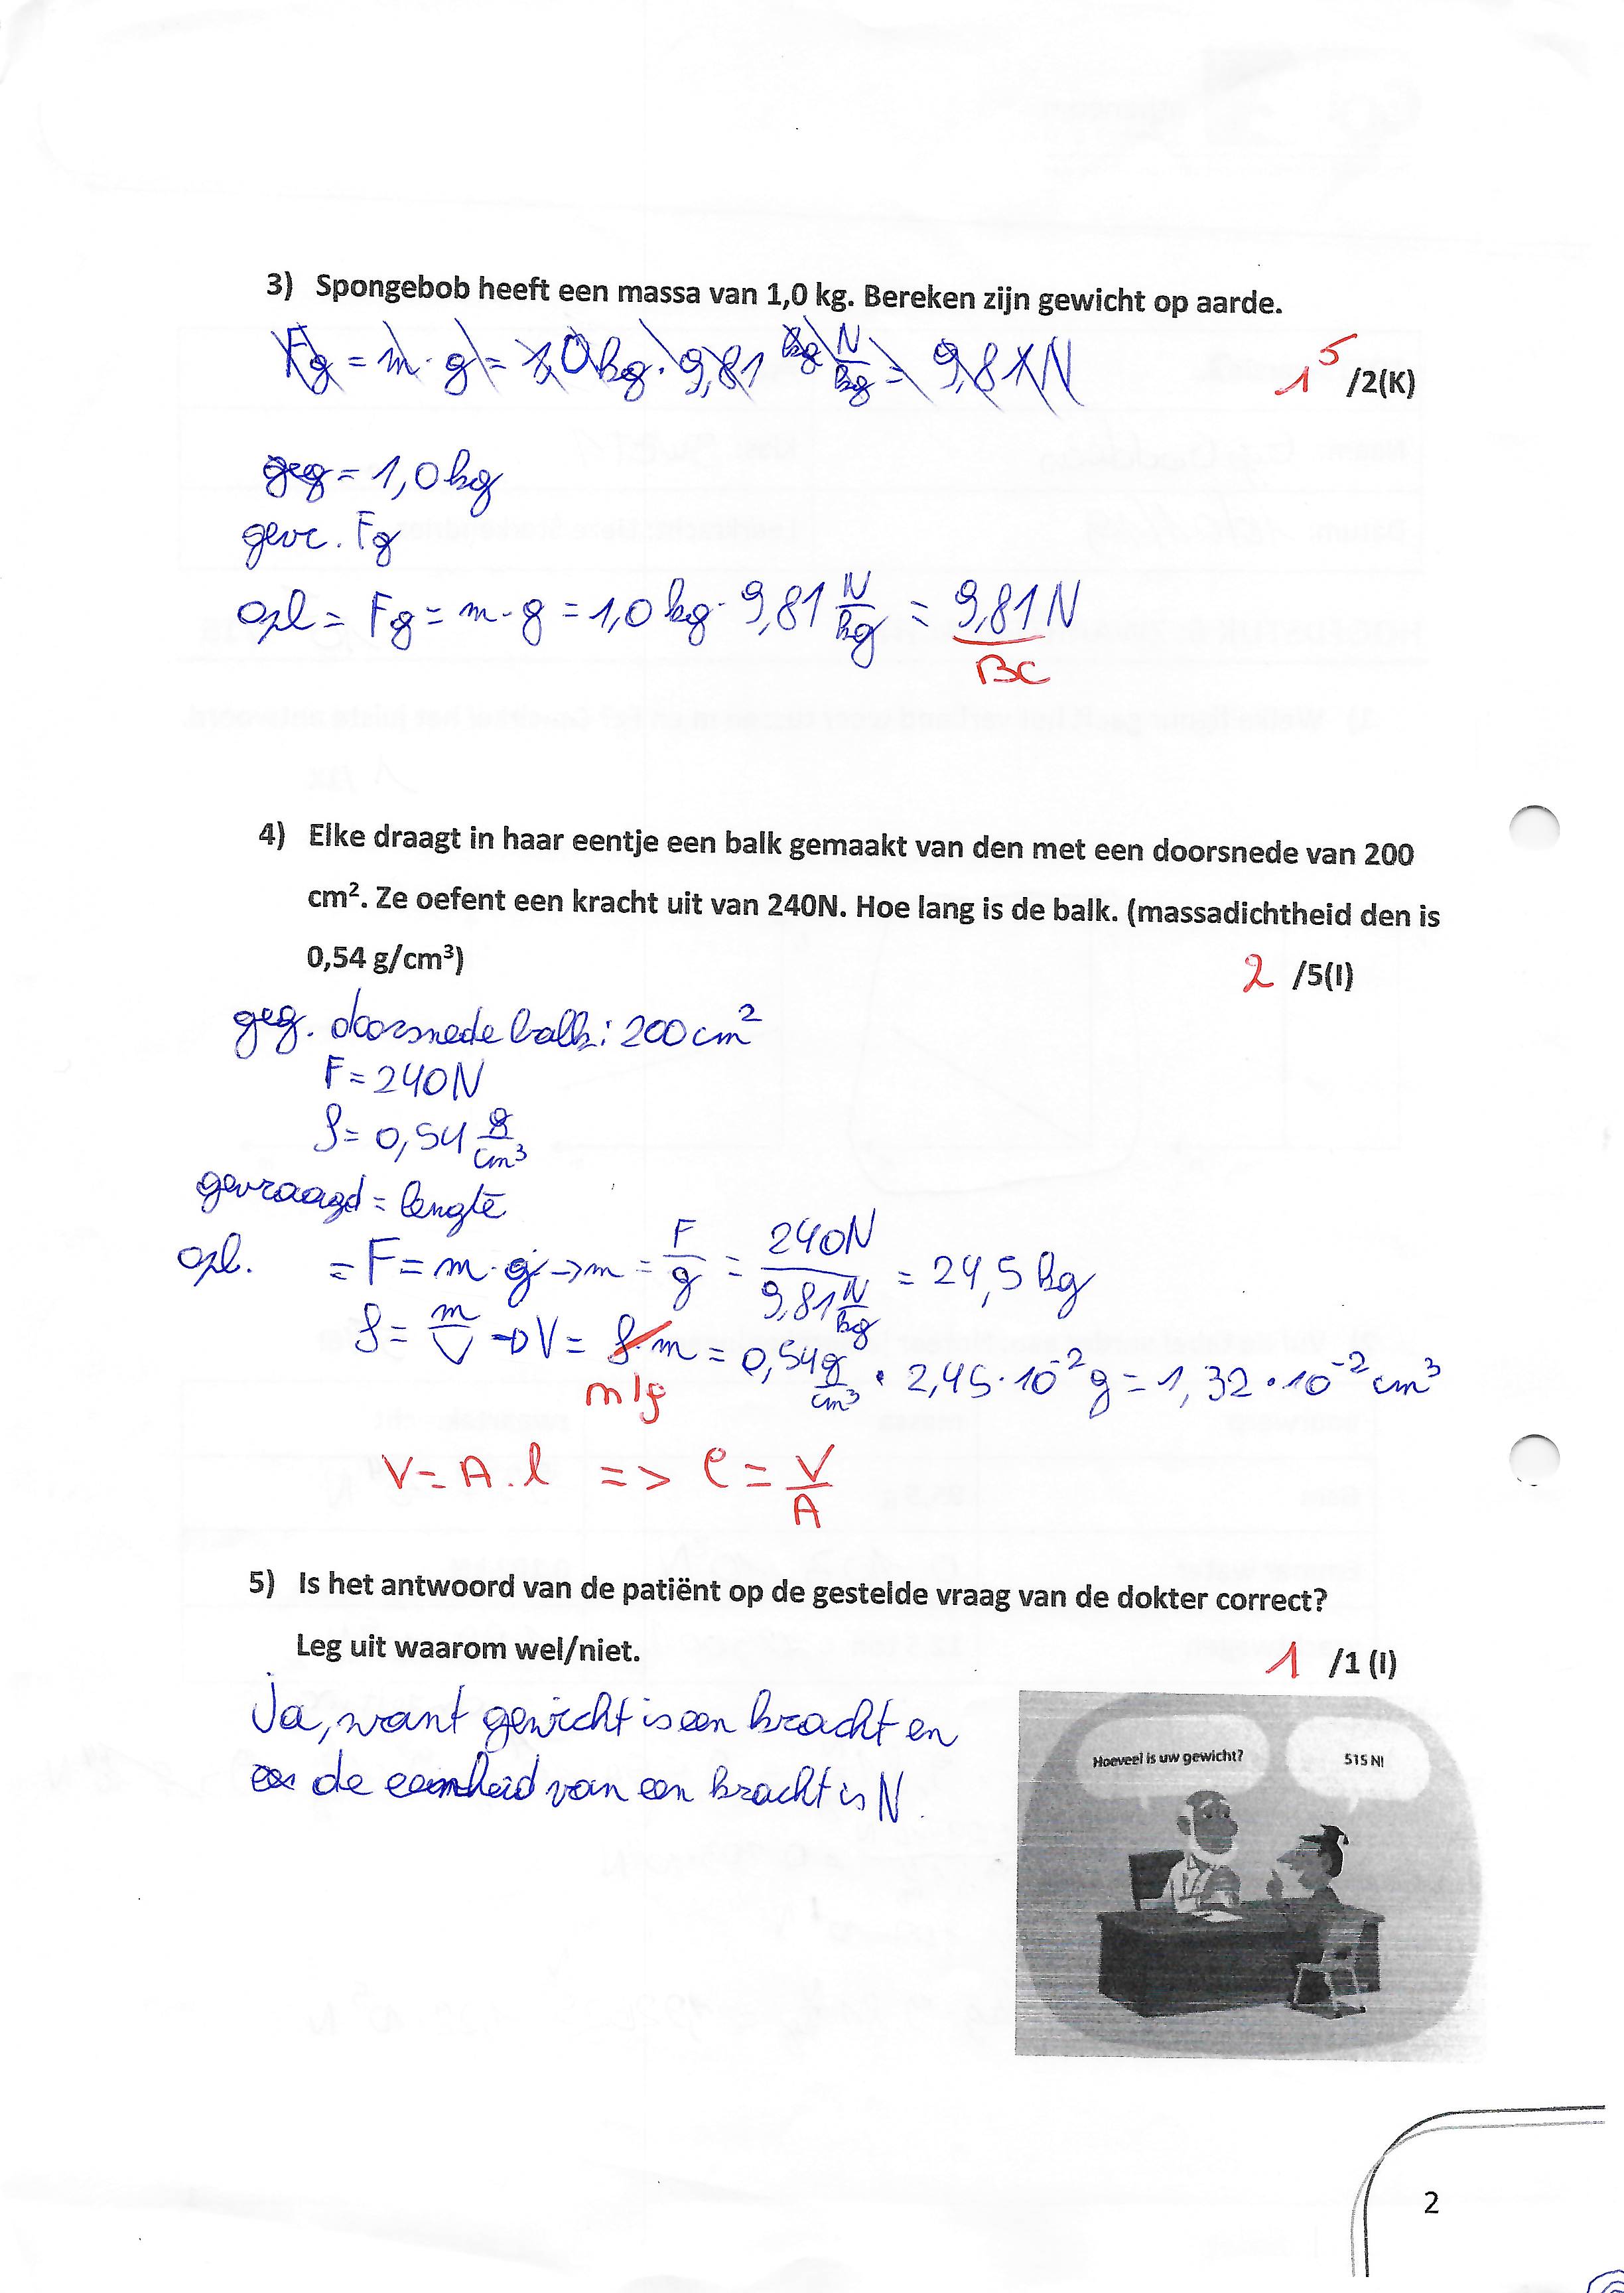 3) Spongebob heeft een massa van 1,0 kg. Bereken zijn gewicht op aarde.
Fg = m · g = 1,0 kg · 9,81 kg N/kg = 9,81 N
1 5 /2(K)
geg = 1,0 kg
gevr. Fg
opl = Fg = m · g = 1,0 kg · 9,81 N/kg = 9,81 N
BC
4) Elke draagt in haar eentje een balk gemaakt van den met een doorsnede van 200
cm². Ze oefent een kracht uit van 240N. Hoe lang is de balk. (massadichtheid den is
0,54 g/cm³)
2 /5(I)
geg. doorsnede balk: 200 cm²
F = 240 N
ρ = 0,54 g/cm³
gevraagd = lengte
opl. = F = m · g → m = F/g = 240N / 9,81 N/kg = 24,5 kg
ρ = m/V → V = ρ · m = 0,54 g/cm³ · 2,45 · 10⁻² g = 1,32 · 10⁻² cm³
m/ρ
V = A . l => l = V/A
5) Is het antwoord van de patiënt op de gestelde vraag van de dokter correct?
Leg uit waarom wel/niet.
1 /1 (I)
Ja, want gewicht is een kracht en
de eenheid van een kracht is N.
Hoeveel is uw gewicht?
515 N!
2